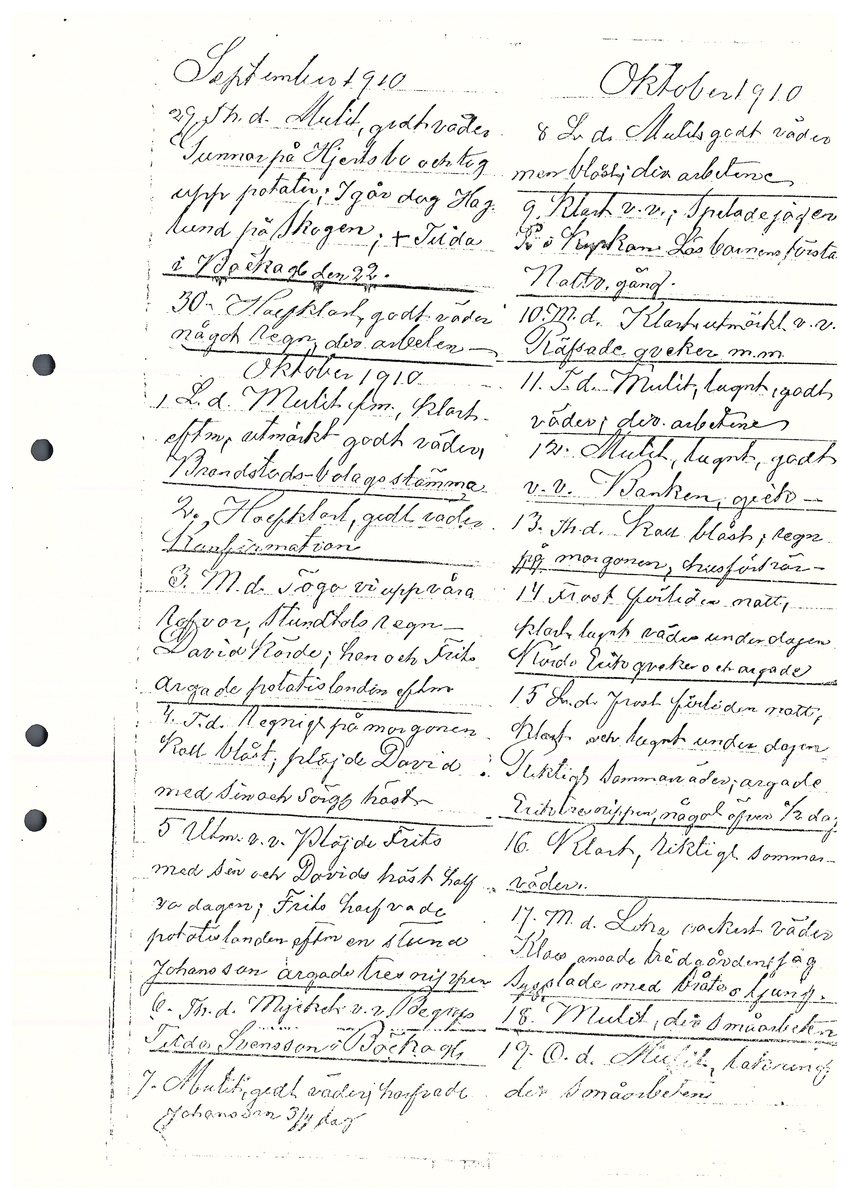 September 1910
29. Th. d. Mulit, godt väder
Gunnar på Hjertsbo och tog
upp potater; I går dog Hag-
lund på Skogen; + Tilda
i Böckagb den 22.
30. Halfklart, godt väder
något regn, div. arbeten
Oktober 1910
1 L. d. Mulit fm., klart
eftm, utmärkt godt väder,
Brandstods-bolagsstämma
2. Halfklart, godt väder
Konfirmation
3. M. d. Togo vi upp våra
rofvor, stundtals regn
David körde; han och Frits
argade potatislanden eftm
4. T. d. Regnigt på morgonen
Kall blåst; plöjde David
med sin och häst
5 Utm. v. v. Plöjde Frits
med sin och Davids häst half-
va dagen; Frits harfvade
potatislanden eftm en stund
Johansson argade
6. Th. d. Mycket v. v. Begrofs
Tilda Svensson i Böckagb
7. Mulit, godt väder; harfvade
Johansson 3/4 dag
Oktober 1910
8 L. d. Mulit godt väder
men blåst; div arbeten
9. Klart v. v.; Spelade jag
i Kyrkan Läsbarnens första
Nattv. gång.
10. M. d. Klart, utmärkt v. v.
Räfsade qveker m.m
11. T. d. Mulit, lugnt, godt
väder; div. arbeten
12. Mulit, lugnt, godt
v. v. Banken,
13. Th. d. Kall blåst, regn
på morgonen,
14 Frost förliden natt,
klart, lugnt väder under dagen
Körde Erik qveker och argade
15 L. d. Frost förliden natt,
Klart och lugnt under dagen
Riktigt sommarväder; argade
Erik något öfver 1/2 dag
16. Klart, riktigt sommar-
väder.
17. M. d. Lika vackert väder
Klas ansade trädgården; jag
sysslade med bråte o ljung.
18. Mulit, div småarbeten
19. O. d. Mulit,
div småarbeten